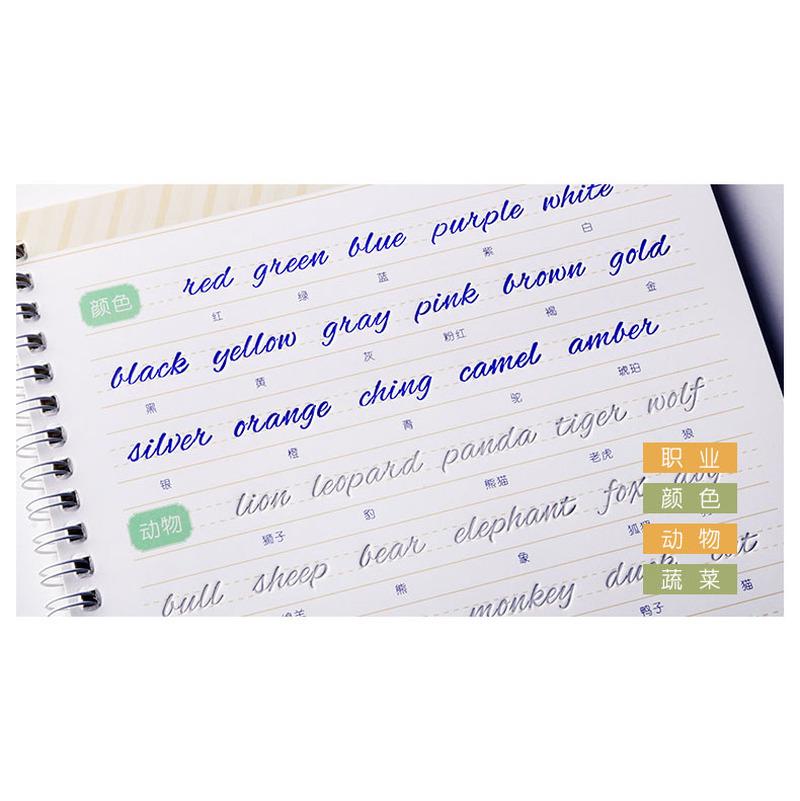 red green blue purple white
颜色 红 绿 蓝 紫 白
black yellow gray pink brown gold
黑 黄 灰 粉红 褐 金
silver orange ching camel amber
银 橙 青 驼 琥珀
lion leopard panda tiger wolf
动物 狮子 豹 熊猫 老虎 狼
bull sheep bear elephant fox dog
绵羊 熊 象 狐狸
monkey duck cat
鸭子 猫
职业
颜色
动物
蔬菜